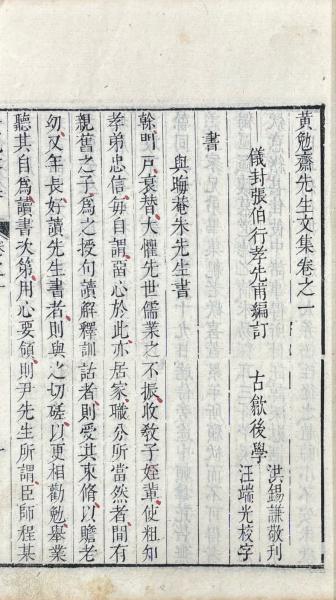 黃勉齋先生文集卷之一
儀封張伯行孝先甫編訂
古歙後學
洪錫謙敬刊
汪瑞光校字
書
與晦菴朱先生書
榦門戶衰替大懼先世儒業之不振收敎子姪輩使粗知
孝弟忠信每自謂留心於此亦居家職分所當然者間有
親舊之子爲之授句讀解釋訓詁者則受其束脩以贍老
幼又年長好讀先生書者則與之切磋以更相勸勉舉業
聽其自爲讀書次第用心要領則尹先生所謂臣師程某